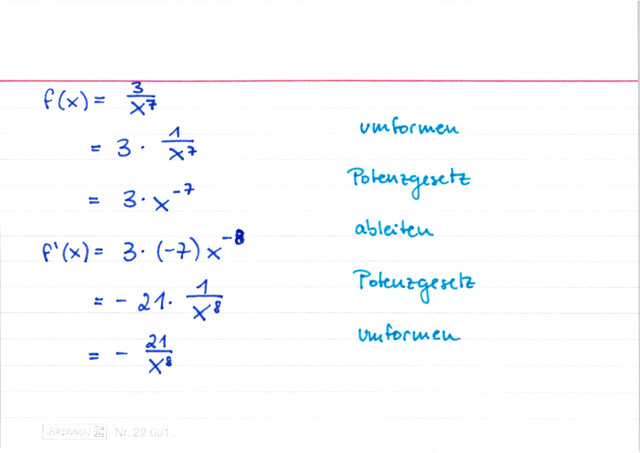 f(x) = 3/x⁷
umformen
= 3 · 1/x⁷
Potenzgesetz
= 3 · x⁻⁷
ableiten
f'(x) = 3 · (-7) x⁻⁸
Potenzgesetz
= - 21 · 1/x⁸
umformen
= - 21/x⁸
BRUNNEN Nr. 22 601